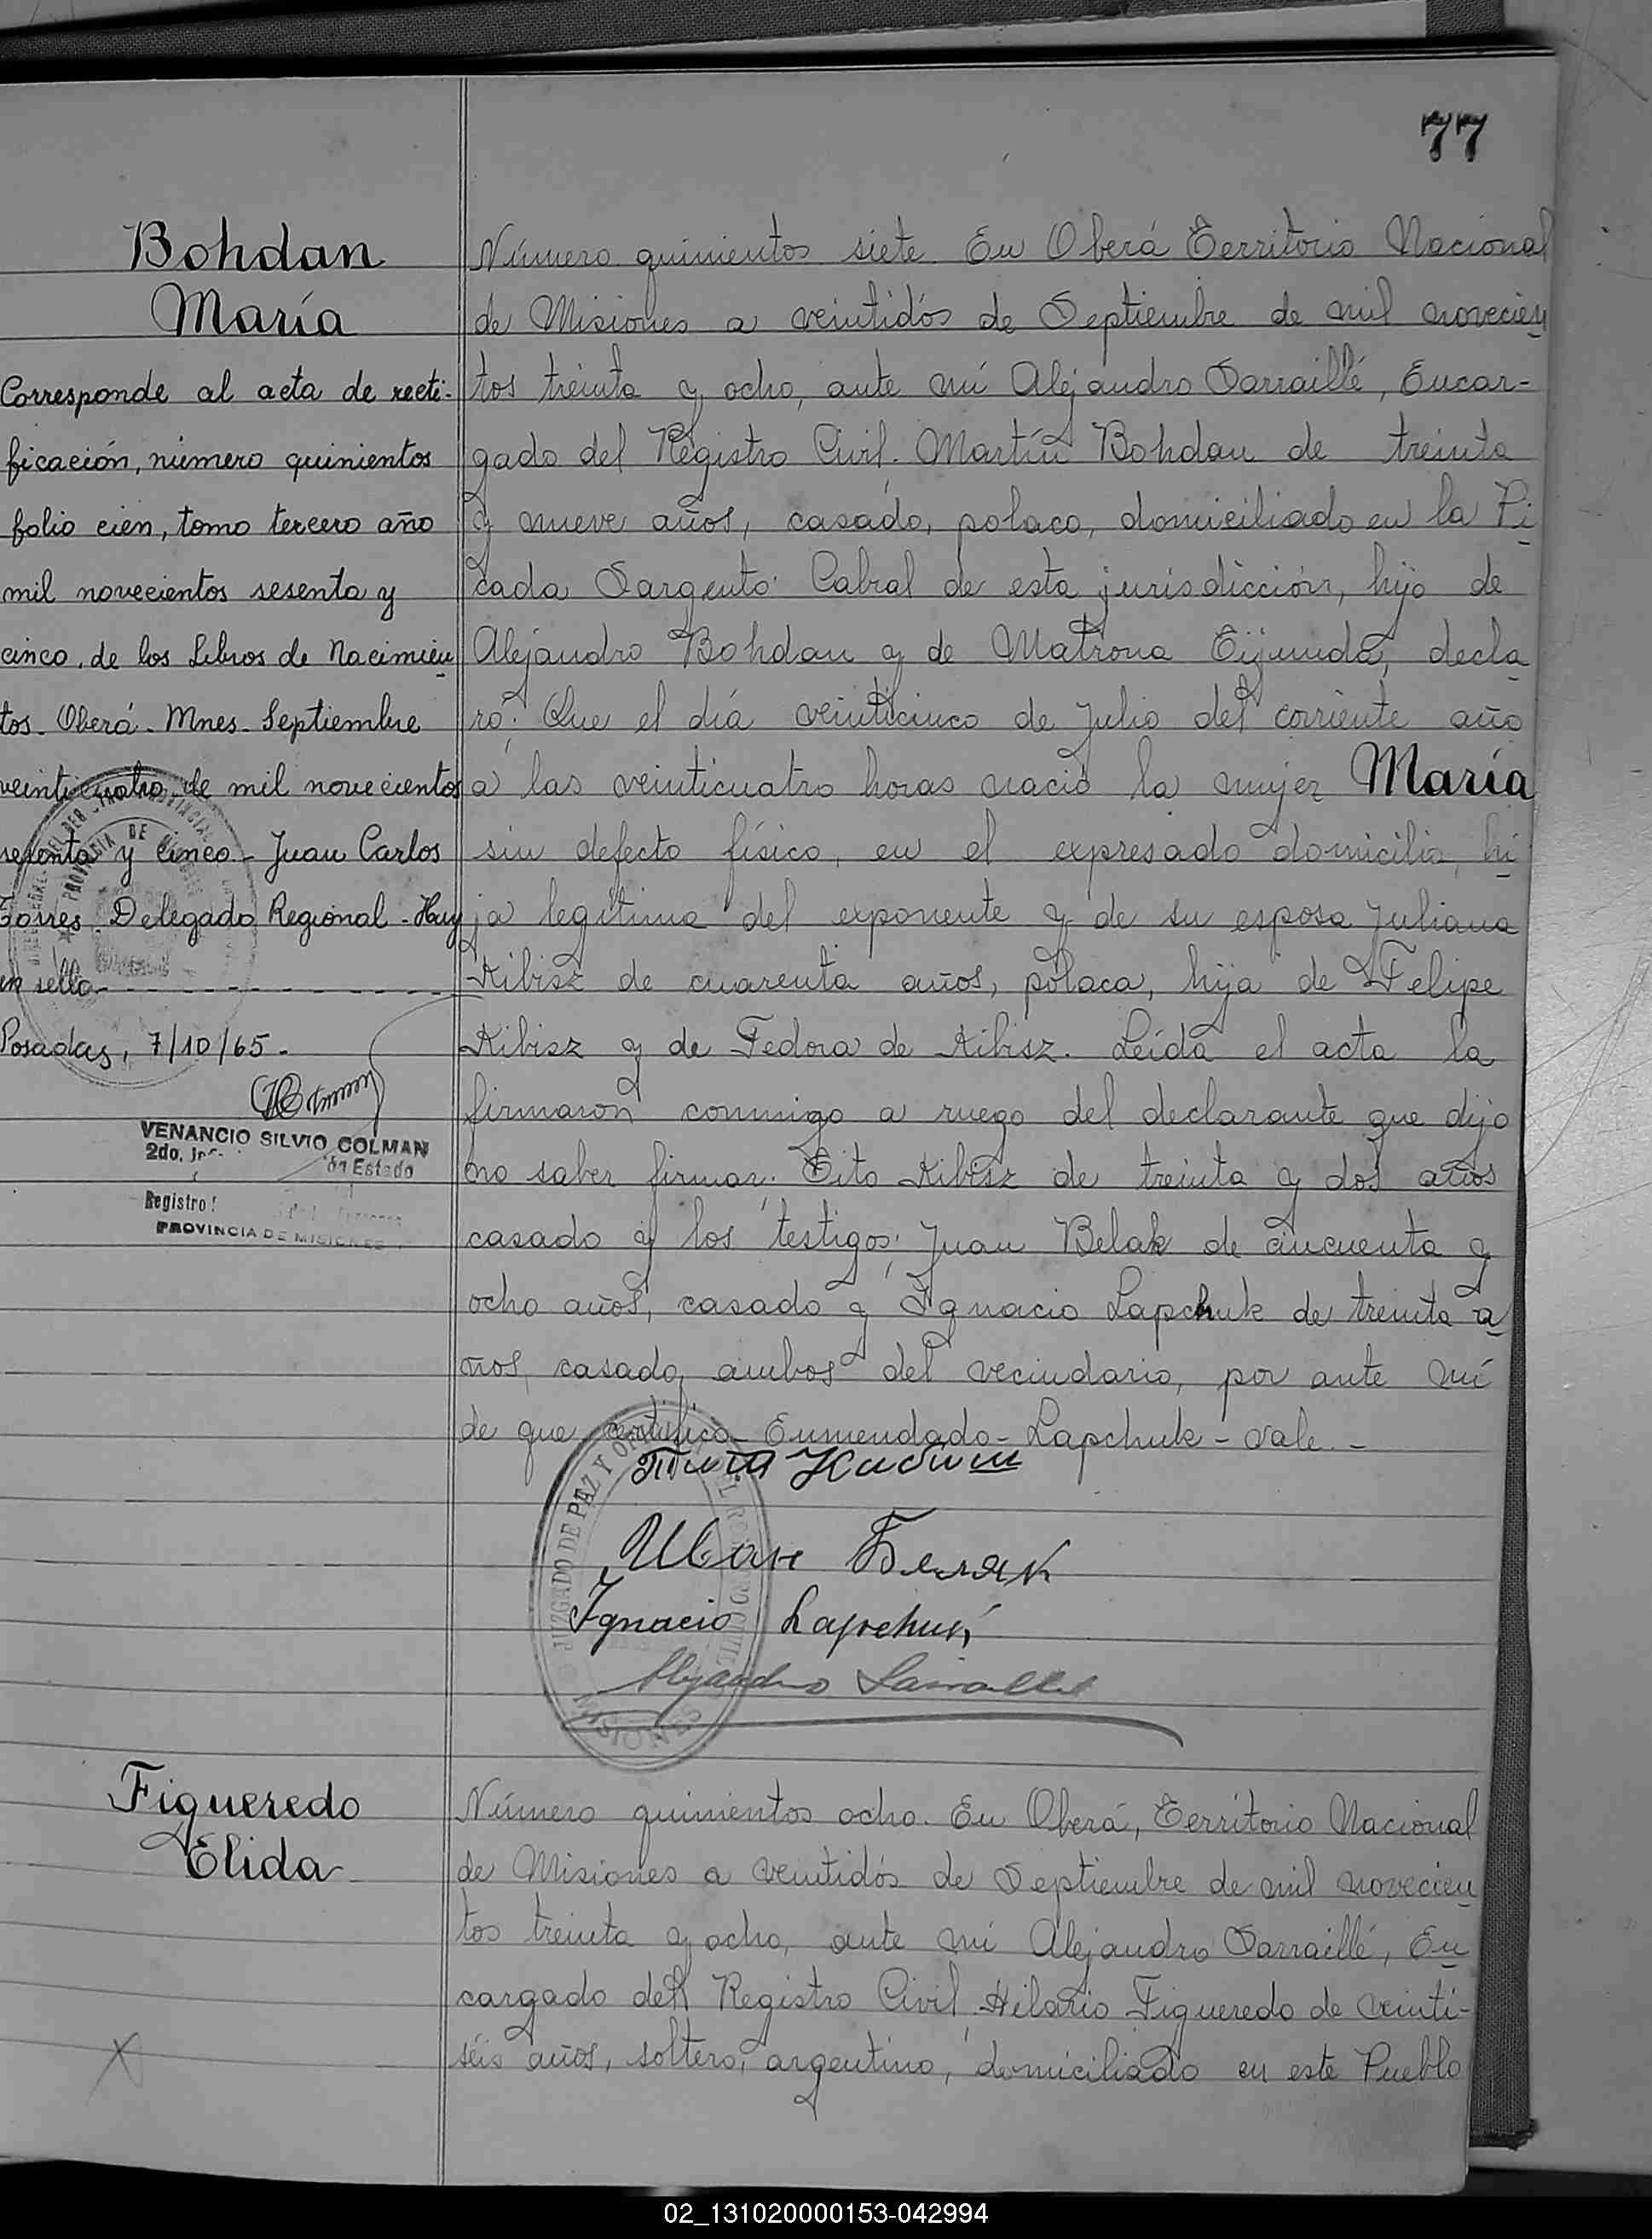 77
Bohdan
María
Corresponde al acta de recti-
ficación, número quinientos
folio cien, tomo tercero año
mil novecientos sesenta y
cinco, de los Libros de Nacimien
tos. Oberá - Mnes - Septiembre
veinticuatro de mil novecientos
sesenta y cinco - Juan Carlos
Torres. Delegado Regional - Hay
un sello
Posadas, 7/10/65.-
VENANCIO SILVIO COLMAN
2do.
Estado
Registro
PROVINCIA DE MISIONES
Número quinientos siete. En Oberá Territorio Nacional
de Misiones a veintidós de Septiembre de mil novecien
tos treinta y ocho, ante mí Alejandro Sarraillé, Encar-
gado del Registro Civil. Martín Bohdan de treinta
y nueve años, casado, polaco, domiciliado en la Pi
cada Sargento Cabral de esta jurisdicción, hijo de
Alejandro Bohdan y de Matrona, decla
ró: Que el día veinticinco de Julio del corriente año
a las veinticuatro horas nació la mujer María
sin defecto físico, en el expresado domicilio, hi
ja legítima del exponente y de su esposa Juliana
Kibisz de cuarenta años, polaca, hija de Felipe
Kibisz y de Fedora de Kibisz. Leída el acta la
firmaron conmigo a ruego del declarante que dijo
no saber firmar: Tito Kibisz de treinta y dos años
casado y los testigos: Juan Belak de cincuenta y
ocho años, casado y Ignacio Lapchuk de treinta a
ños, casado, ambos del vecindario, por ante mí
de que certifico. Enmendado - Lapchuk - vale.-
JUZGADO DE PAZ Y
MISIONES
Тит Кибиш
Иван Беляк
Ignacio Lapchuk
Alejandro Sarraillé
Figueredo
Elida
Número quinientos ocho. En Oberá, Territorio Nacional
de Misiones a veintidós de Septiembre de mil novecien
tos treinta y ocho, ante mí Alejandro Sarraillé, En
cargado del Registro Civil. Hilario Figueredo de veinti-
séis años, soltero, argentino, domiciliado en este Pueblo
02_131020000153-042994